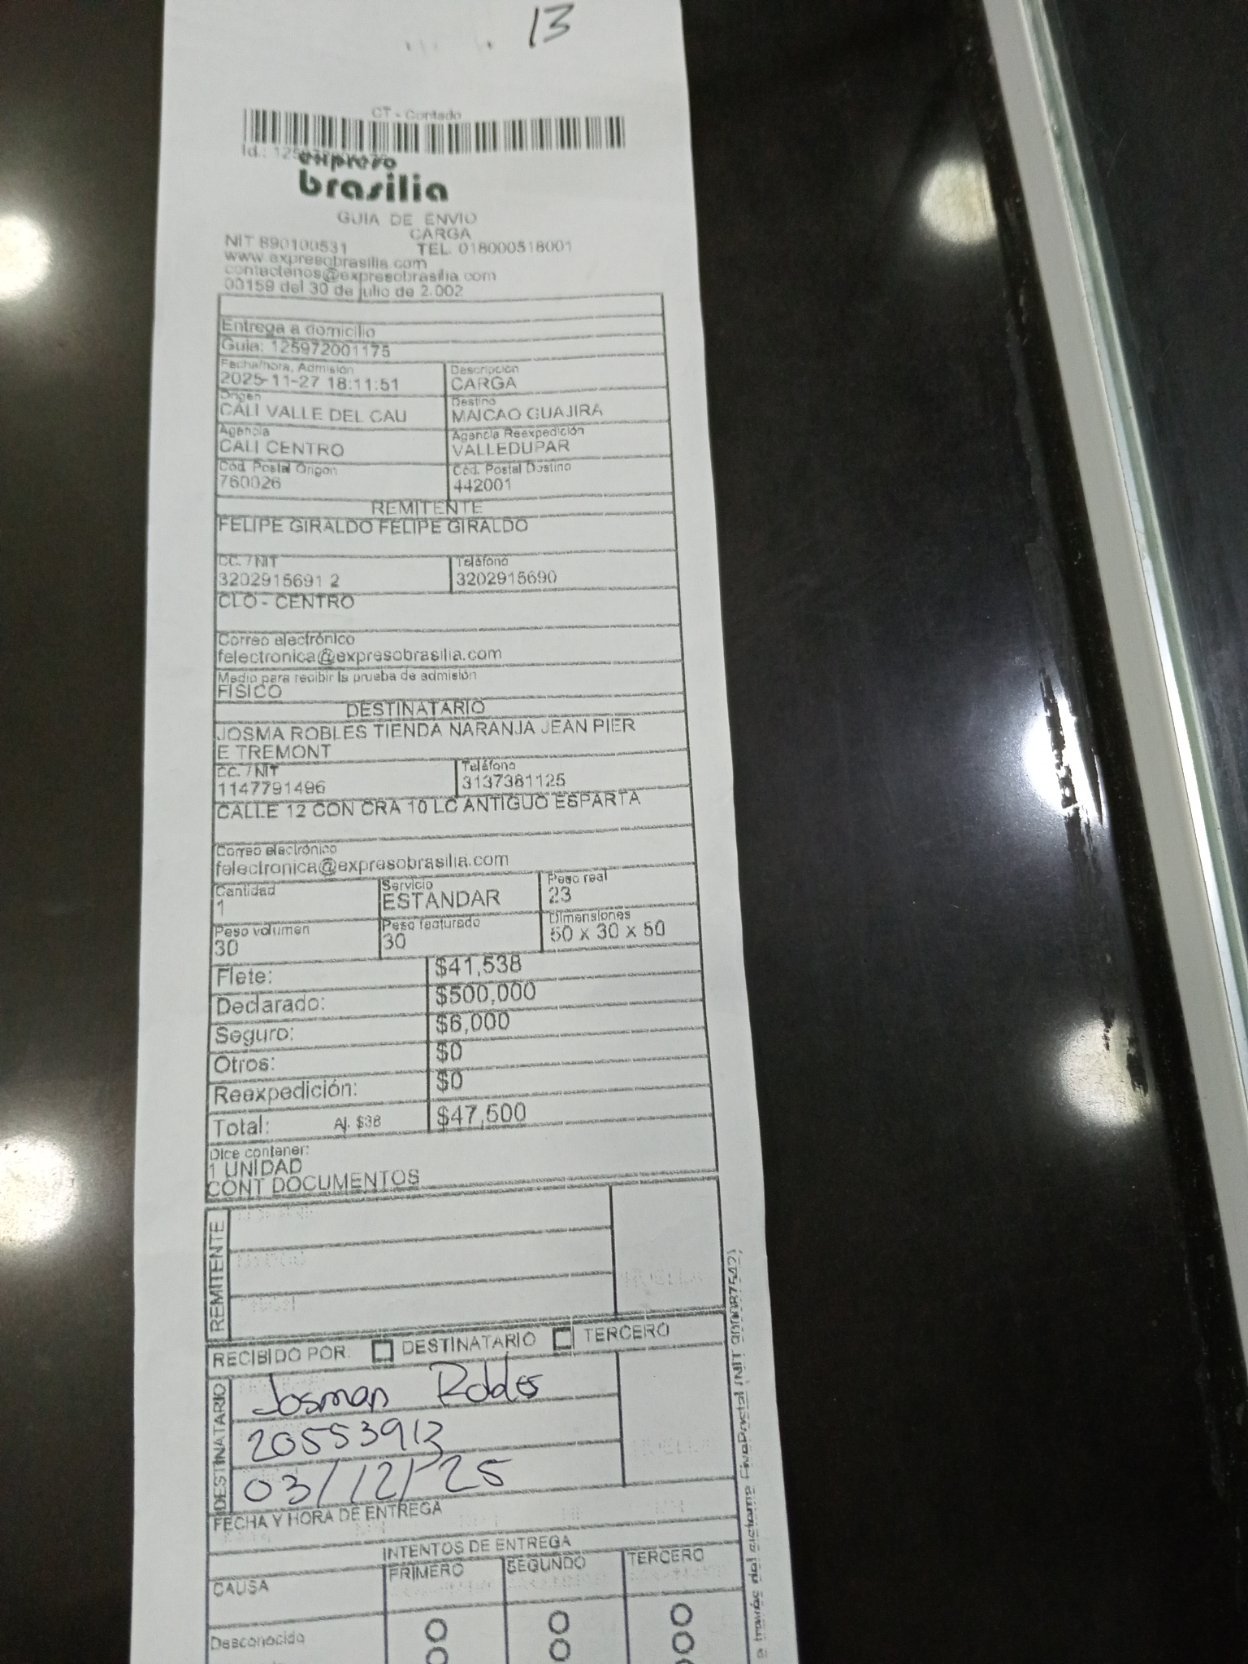 13
CT - Contado
Id.: 125
expreso
brasilia
GUIA DE ENVIO
CARGA
NIT 890100531 TEL. 018000518001
www.expresobrasilia.com
contactenos@expresobrasilia.com
00159 del 30 de julio de 2.002
Entrega a domicilio
Guia: 125972001175
Fecha/hora, Admisión Descripción
2025-11-27 18:11:51 CARGA
Origen Destino
CALI VALLE DEL CAU MAICAO GUAJIRA
Agencia Agencia Reexpedición
CALI CENTRO VALLEDUPAR
Cód. Postal Origen Cód. Postal Destino
760026 442001
REMITENTE
FELIPE GIRALDO FELIPE GIRALDO
CC. / NIT Teléfono
3202915691 2 3202915690
CLO - CENTRO
Correo electrónico
felectronica@expresobrasilia.com
Medio para recibir la prueba de admisión
FISICO
DESTINATARIO
JOSMA ROBLES TIENDA NARANJA JEAN PIER
E TREMONT
CC. / NIT Teléfono
1147791496 3137381125
CALLE 12 CON CRA 10 LC ANTIGUO ESPARTA
Correo electrónico
felectronica@expresobrasilia.com
Cantidad Servicio Peso real
1 ESTANDAR 23
Peso volumen Peso facturado Dimensiones
30 30 50 x 30 x 50
Flete: $41,538
Declarado: $500,000
Seguro: $6,000
Otros: $0
Reexpedición: $0
Total: Aj. $38 $47,500
Dice contener:
1 UNIDAD
CONT DOCUMENTOS
REMITENTE
RECIBIDO POR: DESTINATARIO TERCERO
DESTINATARIO
Josman Robles
20553913
03/12/25
FECHA Y HORA DE ENTREGA
INTENTOS DE ENTREGA
CAUSA PRIMERO SEGUNDO TERCERO
Desconocido
a través del sistema FivePostal (NIT 900087542)